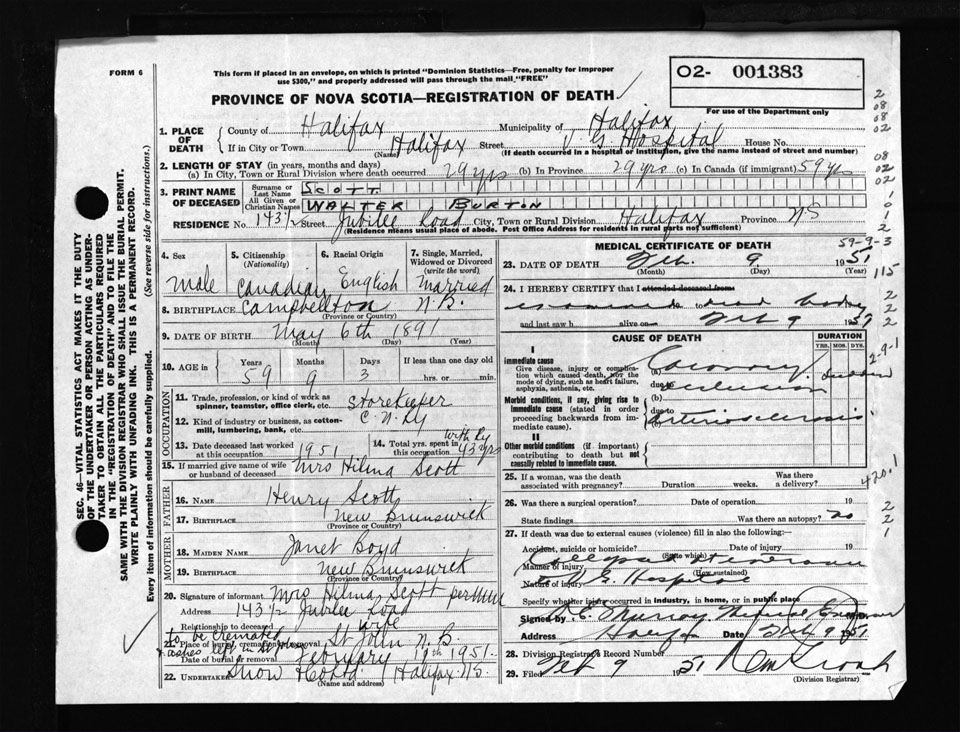 FORM 6
This form if placed in an envelope, on which is printed "Dominion Statistics—Free, penalty for improper
use $300," and properly addressed will pass through the mail "FREE"
O2- 001383
For use of the Department only
PROVINCE OF NOVA SCOTIA—REGISTRATION OF DEATH
1. PLACE OF DEATH
County of Halifax Municipality of Halifax
If in City or Town Halifax Street V G Hospital House No.
(Name) (If death occurred in a hospital or institution, give the name instead of street and number)
2. LENGTH OF STAY (in years, months and days)
(a) In City, Town or Rural Division where death occurred 29 yrs (b) In Province 29 yrs (c) In Canada (if immigrant) 59 yrs
3. PRINT NAME OF DECEASED
Surname or Last Name SCOTT
All Given or Christian Names WALTER BURTON
RESIDENCE No. 143½ Street Jubilee Road City, Town or Rural Division Halifax Province N.S
(Residence means usual place of abode. Post Office Address for residents in rural parts not sufficient)
4. Sex Male
5. Citizenship (Nationality) Canadian
6. Racial Origin English
7. Single, Married, Widowed or Divorced (write the word) Married
8. BIRTHPLACE Campbellton N.B.
(Province or Country)
9. DATE OF BIRTH May 6th 1891
(Month) (Day) (Year)
10. AGE in Years Months Days If less than one day old
59 9 3 hrs. or min.
OCCUPATION
11. Trade, profession, or kind of work as spinner, teamster, office clerk, etc. Storekeeper
12. Kind of industry or business, as cotton-mill, lumbering, bank, etc. C N Ry
13. Date deceased last worked at this occupation 1951
14. Total yrs. spent in this occupation with Ry 43 yrs
15. If married give name of wife or husband of deceased Mrs Hilma Scott
FATHER
16. NAME Henry Scott
17. BIRTHPLACE New Brunswick
(Province or Country)
MOTHER
18. MAIDEN NAME Janet Boyd
19. BIRTHPLACE New Brunswick
(Province or Country)
20. Signature of informant Mrs Hilma Scott per
Address 143½ Jubilee Road
Relationship to deceased Wife
to be cremated
& ashes left in St John
21. Place of burial, cremation or removal St John N.B.
Date of burial or removal February 1951.
22. UNDERTAKER Snow Co Ltd. Halifax N.S.
(Name and address)
MEDICAL CERTIFICATE OF DEATH
23. DATE OF DEATH Feb. 9 1951
(Month) (Day) (Year)
24. I HEREBY CERTIFY that I attended deceased from
examined dead body
and last saw h alive on Feb 9 1951
CAUSE OF DEATH
DURATION
YRS. MOS. DYS.
I
Immediate cause
Give disease, injury or complication which caused death, not the mode of dying, such as heart failure, asphyxia, asthenia, etc.
(a) Coronary sudden
due to occlusion
Morbid conditions, if any, giving rise to immediate cause (stated in order proceeding backwards from immediate cause).
(b)
due to
Arteriosclerosis
II
Other morbid conditions (if important) contributing to death but not causally related to immediate cause.
25. If a woman, was the death associated with pregnancy? Duration weeks. Was there a delivery?
26. Was there a surgical operation? Date of operation 19
State findings Was there an autopsy? no
27. If death was due to external causes (violence) fill in also the following:
Accident, suicide or homicide? Date of injury 19
(State which)
Manner of injury Collapsed
(How sustained)
Nature of injury V.G. Hospital
Specify whether injury occurred in industry, in home, or in public place
Signed by Murray Medical Examiner
Address Halifax Date Feb 9 1951
28. Division Registrar's Record Number
29. Filed Feb 9 1951
(Division Registrar)
SEC. 46—VITAL STATISTICS ACT MAKES IT THE DUTY
OF THE UNDERTAKER OR PERSON ACTING AS UNDERTAKER TO OBTAIN ALL THE PARTICULARS REQUIRED
IN THE "REGISTRATION OF DEATH" AND FILE THE
SAME WITH THE DIVISION REGISTRAR WHO SHALL ISSUE THE BURIAL PERMIT.
WRITE PLAINLY WITH UNFADING INK. THIS IS A PERMANENT RECORD.
Every item of information should be carefully supplied. (See reverse side for instructions.)
2
08
08
02
08
02
02
1
0
1
2
59-9-3
115
2
2
2
2-9-1
420.1
2
2
1